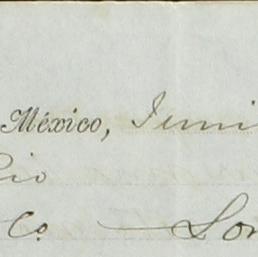 México, Juni
Rio
Co. Lon